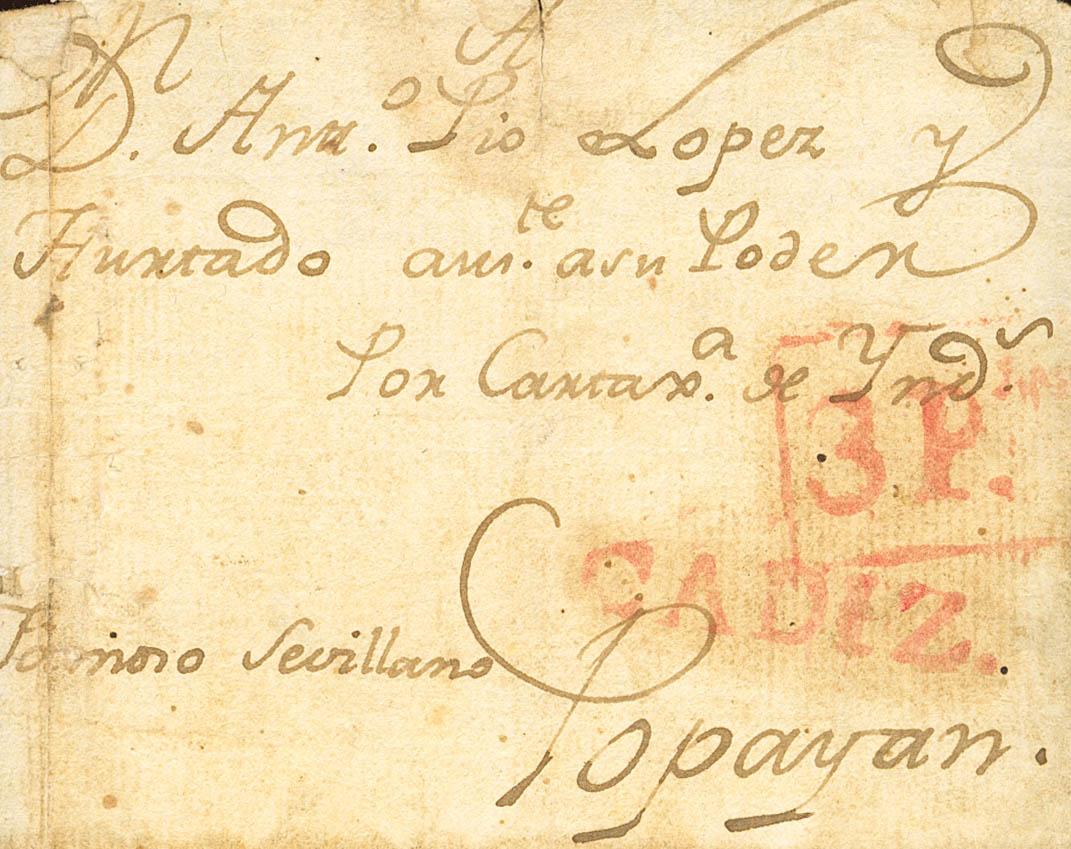 A
D.n Antt.o Pio Lopez y
Hurtado aus.te asu Poder
Por Cartax.a de Ynd.s
3P.
CADIZ.
Sevillano
Popayan.